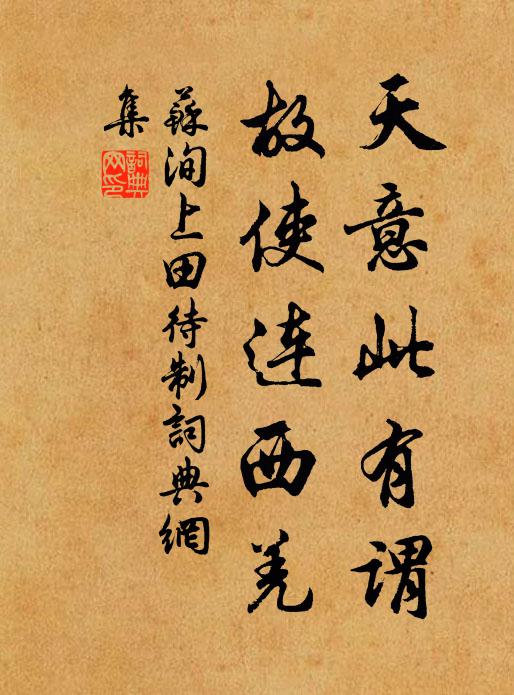 天意此有谓
故使连西羌
蘇洵上田待制詞典網
集
詞典網印